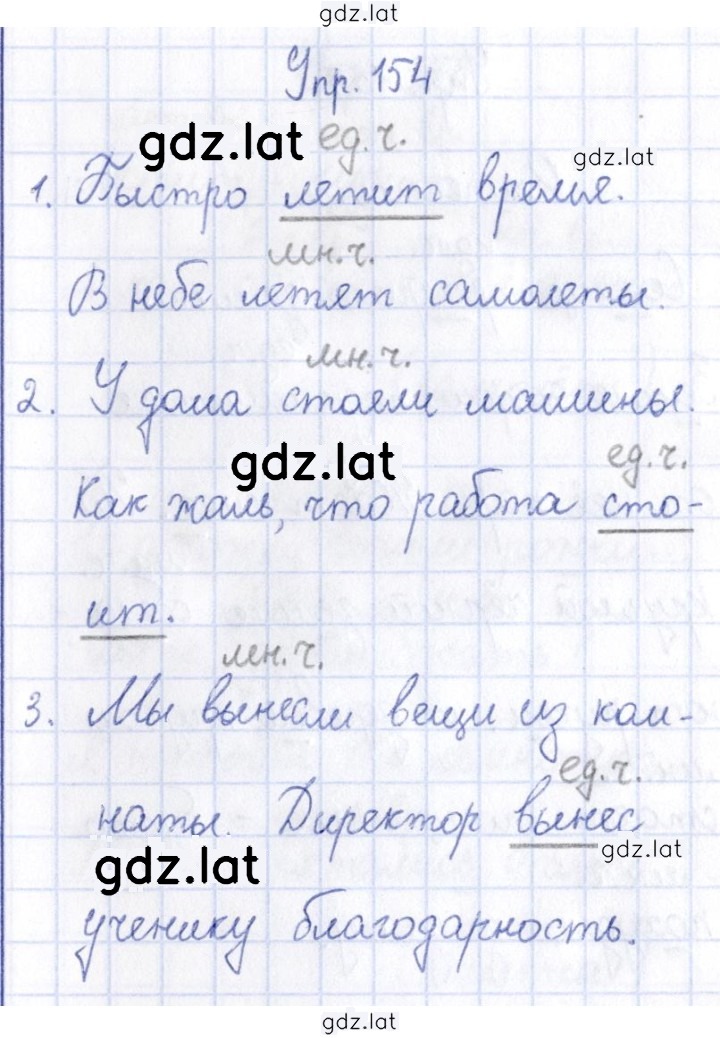 gdz.lat
Упр. 154
gdz.lat ед.ч. gdz.lat
1. Быстро летит время.
мн.ч.
В небе летят самолеты.
мн.ч.
2. У дома стояли машины.
gdz.lat ед.ч.
Как жаль, что работа сто-
ит.
мн.ч.
3. Мы вынесли вещи из ком-
ед.ч.
наты. Директор вынес
gdz.lat gdz.lat
ученику благодарность.
gdz.lat